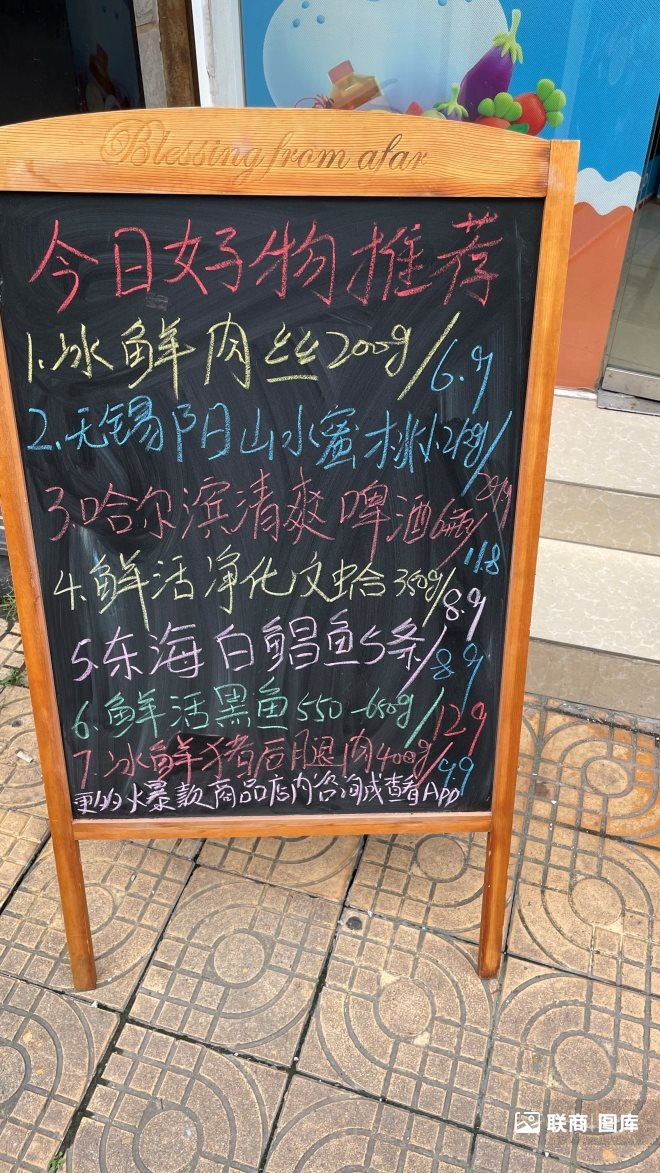 Blessing from afar
今日好物推荐
1.冰鲜肉丝200g/6.9
2.无锡阳山水蜜桃
3哈尔滨清爽啤酒6瓶/11.8
4.鲜活净化文蛤350g/8.9
5.东海白鲳鱼5条/8.9
6.鲜活黑鱼550-650g/12.9
7.冰鲜猪后腿肉400g/9.9
更多火爆款商品店内咨询或查看App
联商图库